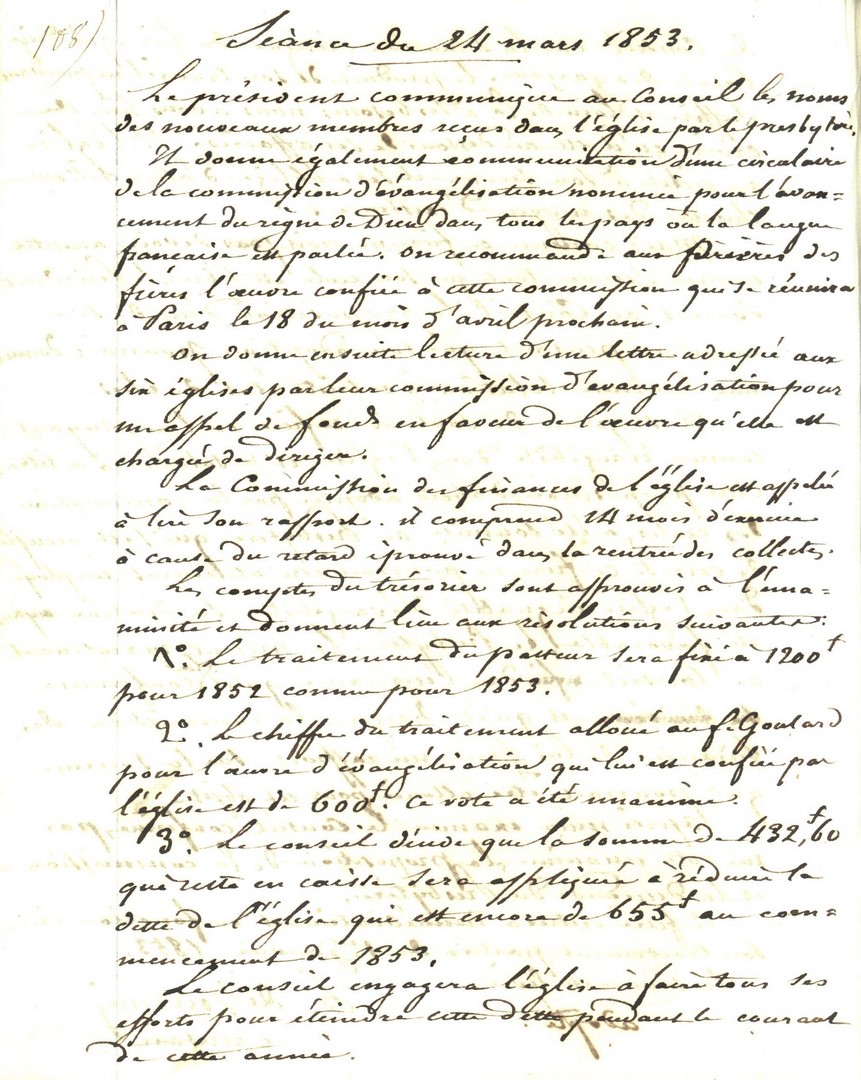 188)
Séance du 24 mars 1853.
Le président communique au Conseil les noms
des nouveaux membres reçus dans l'église par le presbytère.
Il donne également communication d'une circulaire
de la commission d'évangélisation nommée pour l'avan=
cement du règne de Dieu dans tous les pays où la langue
française est parlée. On recommande aux prières des
frères l'œuvre confiée à cette commission qui se réunira
à Paris le 18 du mois d'avril prochain.
On donne ensuite lecture d'une lettre adressée aux
six églises par leur commission d'évangélisation pour
un appel de fonds en faveur de l'œuvre qu'elle est
chargée de diriger.
La Commission des finances de l'église est appelée
à lire son rapport. il comprend 14 mois d'exercice
à cause du retard éprouvé dans la rentrée des collectes.
Les comptes du trésorier sont approuvés à l'una=
nimité et donnent lieu aux résolutions suivantes:
1º. Le traitement du pasteur sera fixé à 1200f
pour 1852 comme pour 1853.
2º. Le chiffre du traitement alloué au f. Goulard
pour l'œuvre d'évangélisation qui lui est confiée par
l'église est de 600f. Ce vote a été unanime.
3º. Le conseil décide que la somme de 432,f60
qui reste en caisse sera appliquée à réduire la
dette de l'église qui est encore de 655f au com=
mencement de 1853.
Le conseil engagera l'église à faire tous ses
efforts pour éteindre cette dette pendant le courant
de cette année.